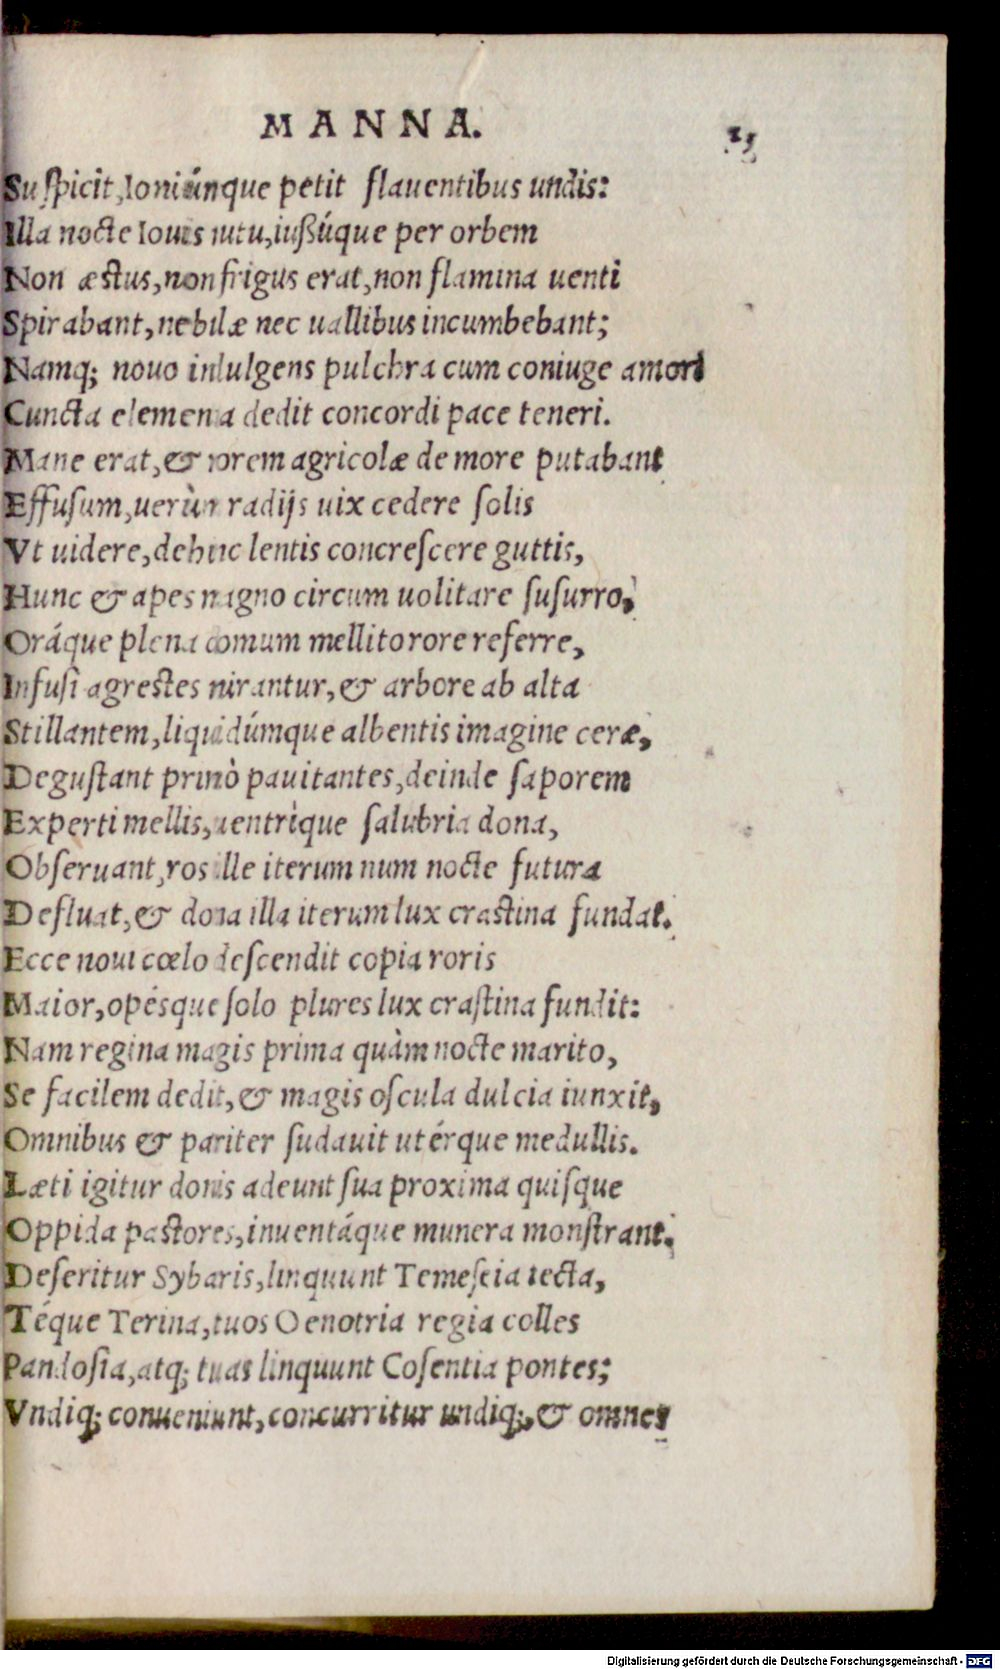 MANNA. 15
Suspicit, Ioniúnque petit flauentibus undis:
Illa nocte Iouis nutu, iußúque per orbem
Non æstus, non frigus erat, non flamina uenti
Spirabant, nebulæ nec uallibus incumbebant;
Namq; nouo indulgens pulchra cum coniuge amori
Cuncta elementa dedit concordi pace teneri.
Mane erat, & rorem agricolæ de more putabant
Effusum, uerùm radijs uix cedere solis
Vt uidere, dehinc lentis concrescere guttis,
Hunc & apes magno circum uolitare susurro,
Oráque plena domum mellito rore referre,
Infusi agrestes mirantur, & arbore ab alta
Stillantem, liquidúmque albentis imagine ceræ,
Degustant primò pauitantes, deinde saporem
Experti mellis, uentrìque salubria dona,
Obseruant, ros ille iterum num nocte futura
Defluat, & dona illa iterum lux crastina fundat.
Ecce noui cœlo descendit copia roris
Maior, opésque solo plures lux crastina fundit:
Nam regina magis prima quàm nocte marito,
Se facilem dedit, & magis oscula dulcia iunxit,
Omnibus & pariter sudauit utérque medullis.
Læti igitur donis adeunt sua proxima quisque
Oppida pastores, inuentáque munera monstrant.
Deseritur Sybaris, linquunt Temeseia tecta,
Téque Terina, tuos Oenotria regia colles
Pandosia, atq; tuas linquunt Cosentia pontes;
Vndiq; conueniunt, concurritur undiq;, & omnes
Digitalisierung gefördert durch die Deutsche Forschungsgemeinschaft - DFG